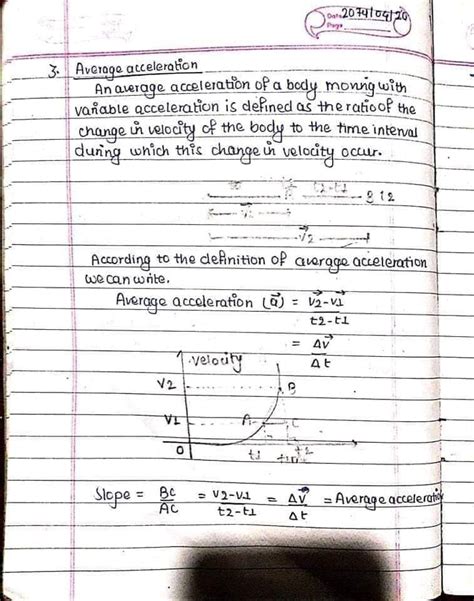 Date 2074/04/20
Page
3. Average acceleration
An average acceleration of a body moving with
variable acceleration is defined as the ratio of the
change in velocity of the body to the time interval
during which this change in velocity occur.
t2-t1
V2
According to the definition of average acceleration
we can write.
Average acceleration (a⃗) = v⃗2-v⃗1
t2-t1
= Δv⃗
Δt
velocity
V2 B
V1 A C
0 t1 t2
Slope = BC/AC = v2-v1/t2-t1 = Δv⃗/Δt = Average acceleration